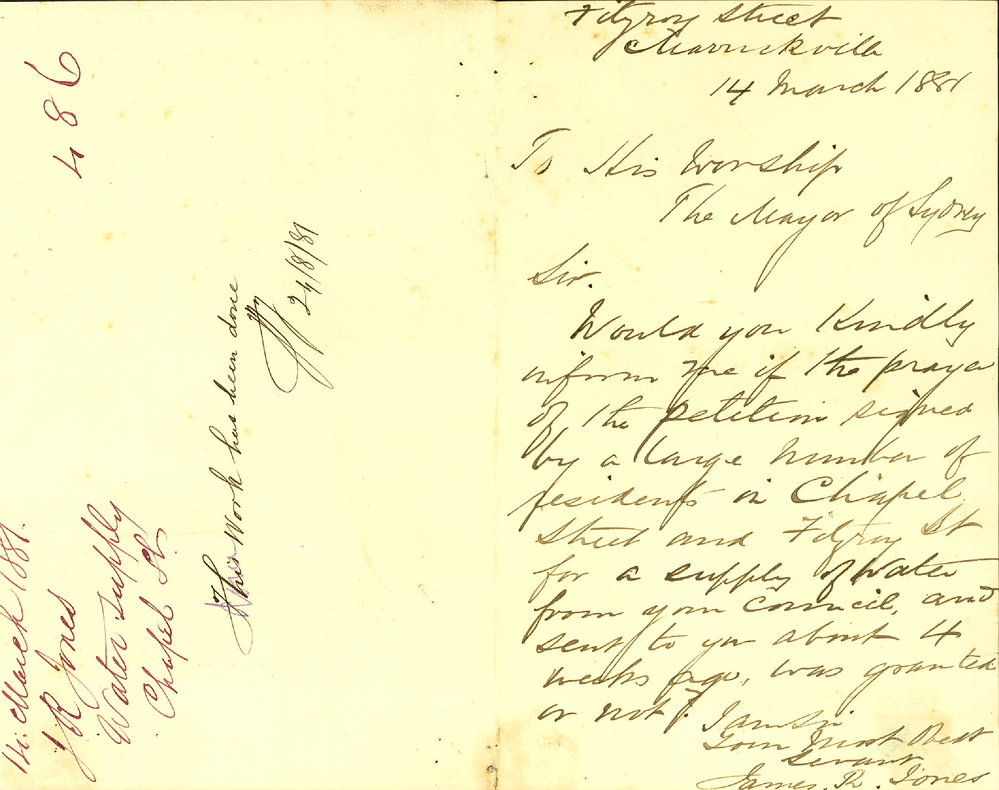 Fitzroy Street
Marrickville
14 March 1881
To His Worship
The Mayor of Sydney
Sir.
Would you Kindly
inform me if the prayer
of the petition signed
by a large number of
residents in Chapel
Street and Fitzroy St
for a supply of water
from your Council, and
sent to you about 4
weeks ago, was granted
or not?
I am Sir
Your Most Obedt
Servant
James. R. Jones
486
14. March 1881.
J R Jones
Water Supply
Chapel St
This Work has been done
24/8/81